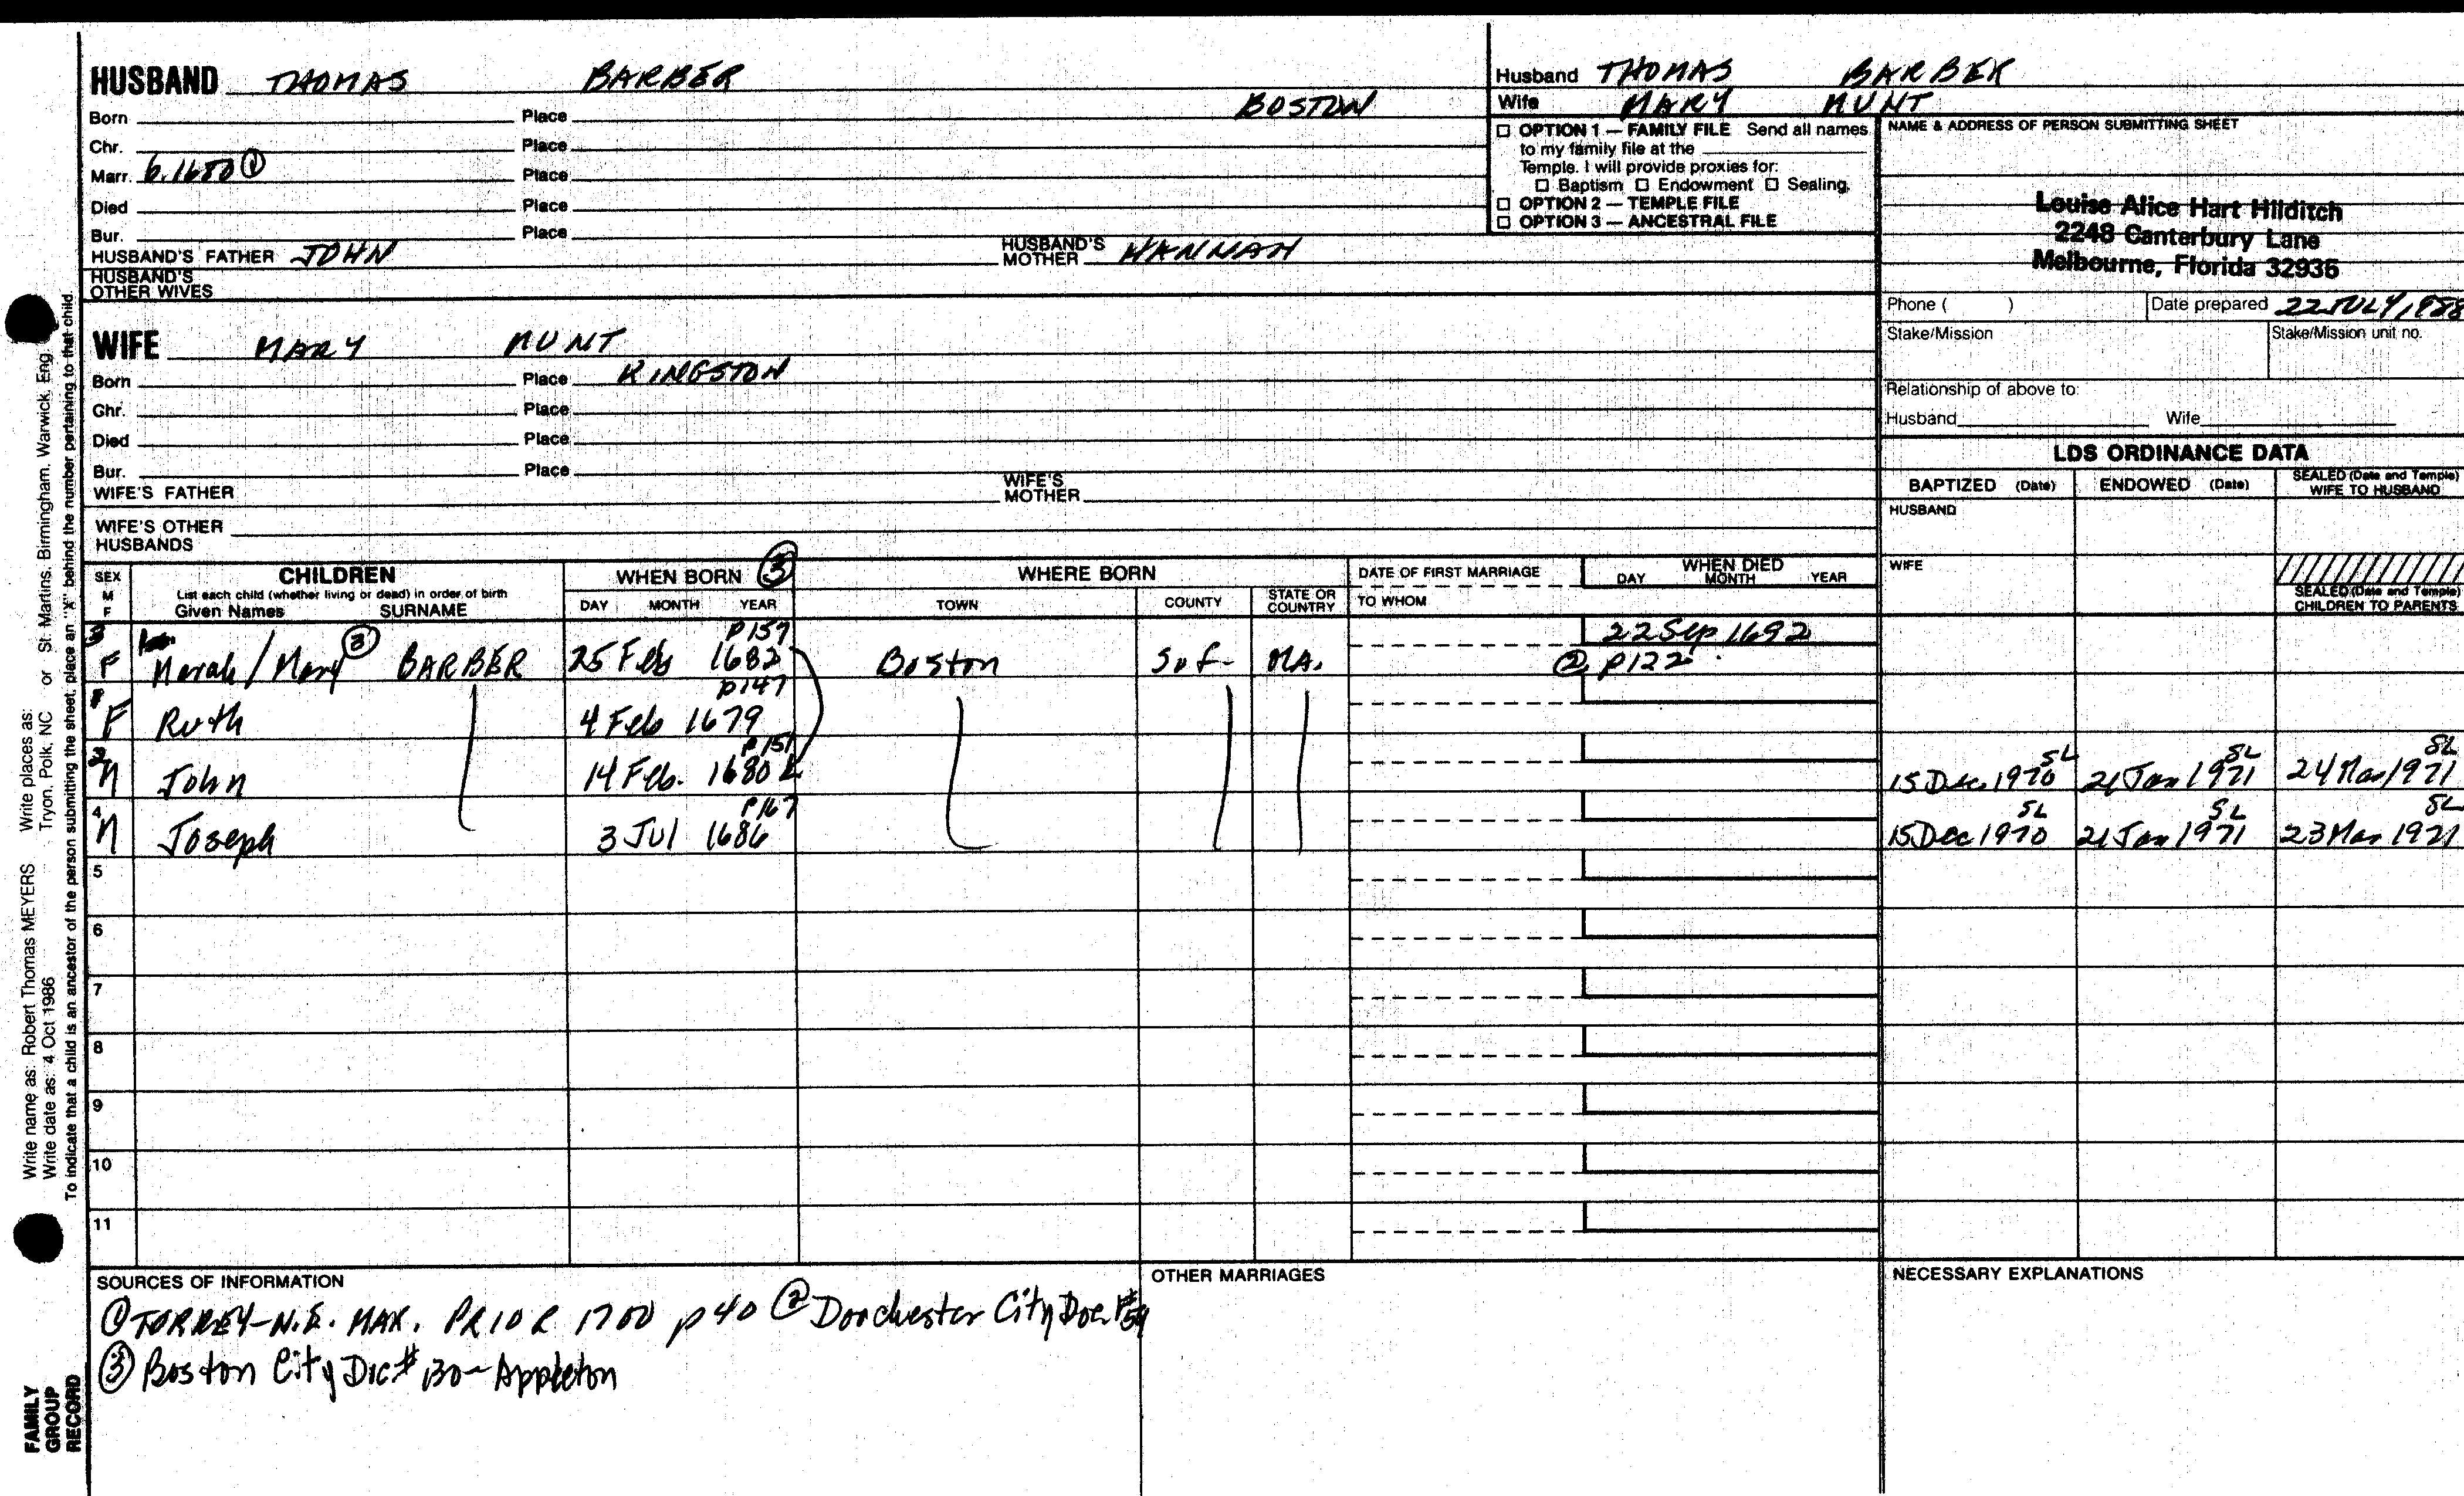 HUSBAND THOMAS BARBER
BOSTON
Born Place
Chr. Place
Marr. 6.1680 ① Place
Died Place
Bur. Place
HUSBAND'S FATHER JOHN HUSBAND'S MOTHER HANNAH
HUSBAND'S OTHER WIVES
Husband THOMAS BARBER
Wife MARY
☐ OPTION 1 — FAMILY FILE Send all names
to my family file at the
Temple. I will provide proxies for:
☐ Baptism ☐ Endowment ☐ Sealing.
☐ OPTION 2 — TEMPLE FILE
☐ OPTION 3 — ANCESTRAL FILE
NAME & ADDRESS OF PERSON SUBMITTING SHEET
Louise Alice Hart Hilditch
2248 Canterbury Lane
Melbourne, Florida 32935
Phone ( ) Date prepared 22 JULY, 1988
Stake/Mission Stake/Mission unit no.
Relationship of above to:
Husband Wife
WIFE MARY
Born Place KINGSTON
Chr. Place
Died Place
Bur. Place
WIFE'S FATHER WIFE'S MOTHER
WIFE'S OTHER HUSBANDS
LDS ORDINANCE DATA
BAPTIZED (Date) ENDOWED (Date) SEALED (Date and Temple) WIFE TO HUSBAND
HUSBAND
WIFE
SEALED (Date and Temple) CHILDREN TO PARENTS
SEX M F
CHILDREN
List each child (whether living or dead) in order of birth
Given Names SURNAME
WHEN BORN ③
DAY MONTH YEAR
WHERE BORN
TOWN COUNTY STATE OR COUNTRY
DATE OF FIRST MARRIAGE
TO WHOM
WHEN DIED
DAY MONTH YEAR
3 p159 22 Sep 1692
F / Mary ③ BARBER 25 Feb 1682 Boston Suf- MA. ② p122
1 p147
F Ruth 4 Feb 1679
2 p151 SL SL SL
M John 14 Feb. 1680 15 Dec. 1970 21 Jan 1971 24 Mar 1971
4 p167 SL SL SL
M Joseph 3 Jul 1686 15 Dec 1970 21 Jan 1971 23 Mar 1971
5
6
7
8
9
10
11
SOURCES OF INFORMATION
① TORREY-N.E. MAR. PRIOR 1700 p40 ② Dorchester City Doc
③ Boston City Doc# 130 - Appleton
OTHER MARRIAGES
NECESSARY EXPLANATIONS
Write name as: Robert Thomas MEYERS Write places as: St. Martins, Birmingham, Warwick, Eng.
Write date as: 4 Oct 1986 Tryon, Polk, NC or
To indicate that a child is an ancestor of the person submitting the sheet, place an "X" behind the number pertaining to that child
FAMILY
GROUP
RECORD